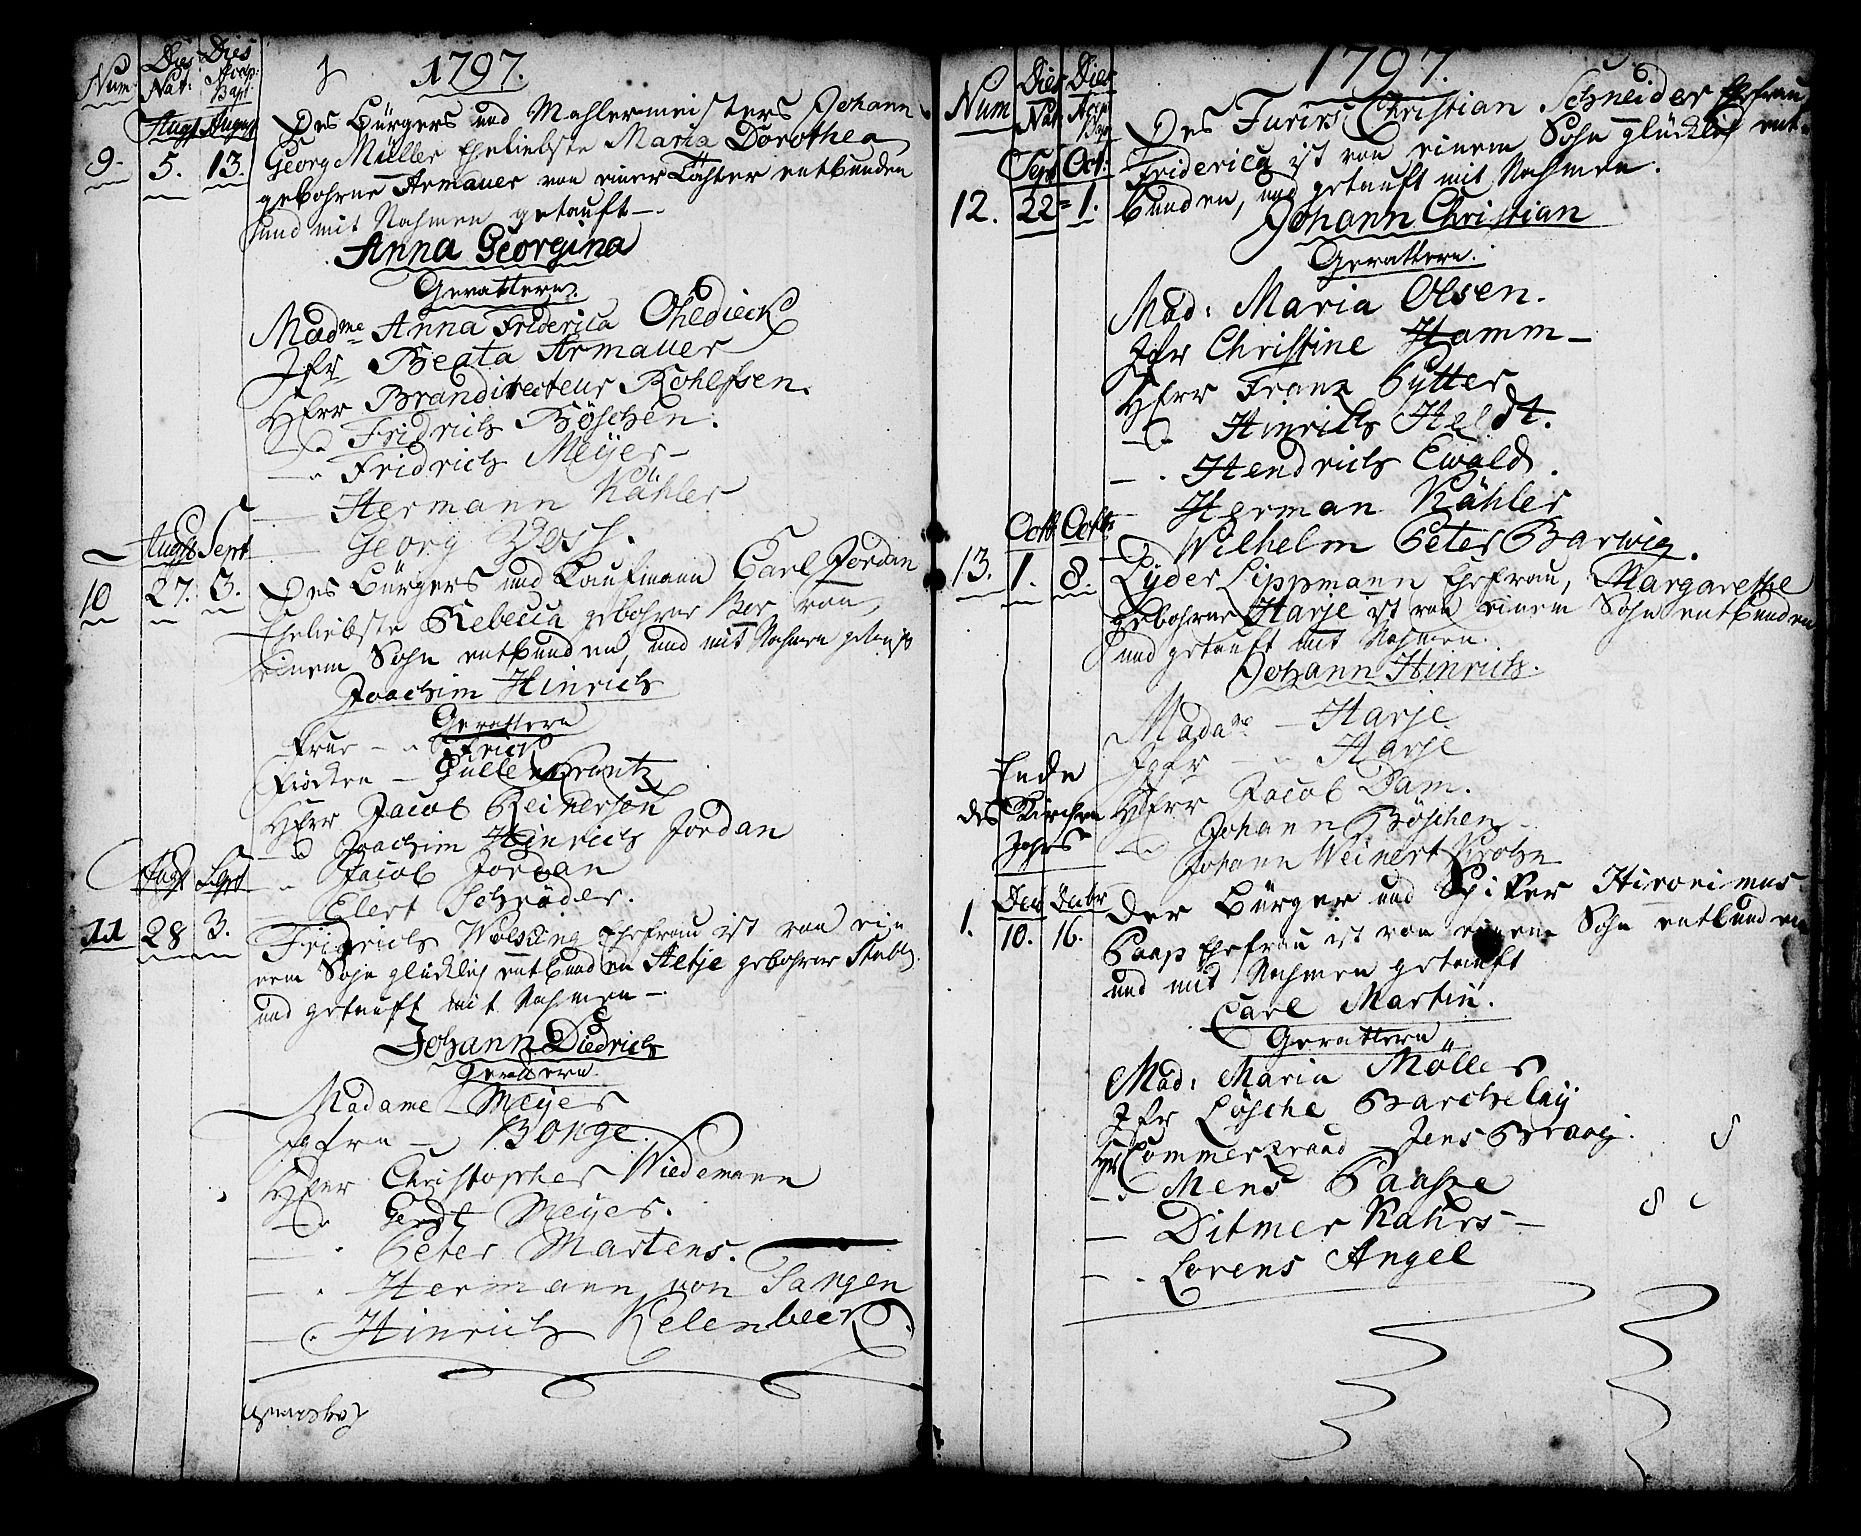 1797.
Num. Dies Nat: Dies Accep. Bapt.
Augst August
9. 5. 13.
Des Bürgers und Mahlermeisters Johann
Georg Müller Eheliebste Maria Dorothea
gebohrne Armauer von einer Tochter entbunden
und mit Nahmen getauft—.
Anna Georgina
Gevattern.
Madme Anna Friderica Ohedieck
Jfr Beata Armauer
HErr Branddirecteur Rohlfsen.
— Fridrich Böschen.
— Fridrich Meyer—
— Hermann Kähler
— Georg Vosh.
Augst Sept
10 27. 3.
Des Bürgers und Kaufmann Carl Jordan
Eheliebste Rebecca gebohrne von
einem Sohn entbunden, und mit Nahmen getauft
Joachim Hinrich
Gevattern
Frue — Frich
Fröcken — Güllencrantz
HErr Jacob Reinerson
— Joachim Hinrich Jordan
— Jacob Jordan
— Elert Schröder.
Augst Sept
11 28 3.
Fridrich Wolsding Ehefrau ist von ein
nem Sohn glücklich entbunden Aeltje gebohrne
und getauft mit Nahmen—
Johann Diedrich
Gevattern
Madame — Meyer
Jgfru — Bonge.
HErr Christopher Wiedemann
— Gerdt Meyer.
— Peter Martens.
— Hermann von Tangen
— Hinrich Kelenbeer
1797.
Num Dies Nat Dies Accep Bap
Sept Oct:
12. 22= 1.
Des Furirs Christian Schneider Ehefrau
Friderica ist von einem Sohn glücklich ent-
bunden, und getauft mit Nahmen.
Johann Christian
Gevattern.
Mad: Maria Olsen.
Jfr Christine Hamm—
HErr Franz Pytter
— Hinrich Heldt.
— Hendrich Ewald.
— Herman Kähler
— Wilhelm Peter Barwig.
Octb Octbr
13. 1. 8.
Lyder Lippmann Ehefrau, Margarethe
gebohrne Harje ist von einem Sohn entbunden
und getauft mit Nahmen.
Johann Hinrich.
Madame — Harje
Jgfr — Harje
HErr Jacob Dam.
— Johann Böschen
Johann Weinert Krohn
Ende
des Kirchen
Jahrs
Decb Decbr
1. 10. 16.
Der Bürger und Spiker Hironimus
Paap Ehefrau ist von einem Sohn entbunden
und mit Nahmen getauft
Carl Martin.
Gevattern
Mad: Maria Möller
Jfr Lösche Barchelay
Hr Commerzraad Jens Braag.
— Mens Paaske
— Ditmer Kahrs—
— Lorens Angel